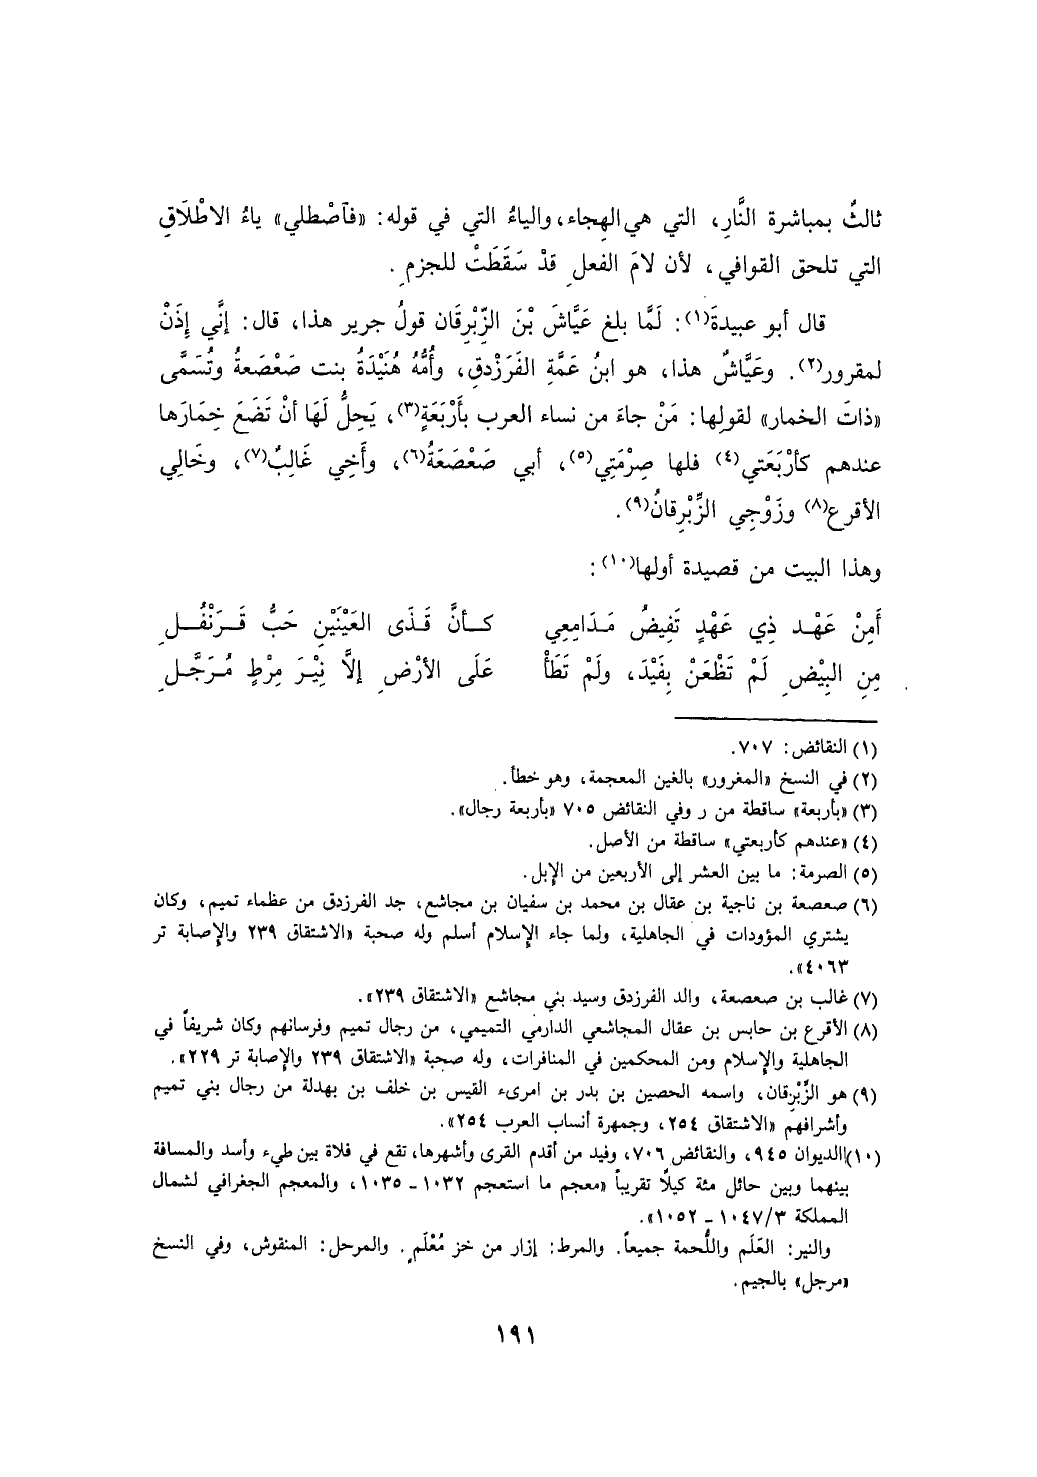 ثالثٌ بمباشرة النَّارِ، التي هي الهِجاء، والياءُ التي في قوله: «فٱصْطلي» ياءُ الاطْلَاقِ
التي تلحق القوافي، لأن لامَ الفعلِ قدْ سَقَطَتْ للجزمِ.
قال أبو عبيدةَ(١): لَمَّا بلغ عَيَّاشَ بْنَ الزّبْرِقَان قولُ جرير هذا، قال: إنَّي إذَنْ
لمقرور(٢). وعَيَّاشٌ هذا، هو ابنُ عَمَّةِ الفَرَزْدقِ، وأُمُّهُ هُنَيْدَةُ بنت صَعْصَعةُ وتُسَمَّى
«ذاتَ الخمار» لقولِها: مَنْ جاءَ من نساء العرب بأَرْبَعَةٍ(٣)، يَحِلُّ لَهَا أنْ تَضَعَ خِمَارَها
عندهم كأرْبَعَتي(٤) فلها صِرْمَتِي(٥)، أبي صَعْصَعَةُ(٦)، وأَخِي غَالِبٌ(٧)، وخَالِي
الأقرع(٨) وزَوْجِي الزِّبْرِقانُ(٩).
وهذا البيت من قصيدة أولها(١٠):
أَمِنْ عَهْد ذِي عَهْدٍ تَفِيضُ مَدَامِعِي كأنَّ قَذَى العَيْنَيْنِ حَبُّ قَرَنْفُلِ
مِنِ البِيْضِ لَمْ تَظْعَنْ بِفَيْدَ، ولَمْ تَطَأْ عَلَى الأرْضِ إلاَّ نِيْرَ مِرْطٍ مُرَجَّلِ
(١) النقائض: ٧٠٧.
(٢) في النسخ «المغرور» بالغين المعجمة، وهو خطأ.
(٣) «بأربعة» ساقطة من ر وفي النقائض ٧٠٥ «بأربعة رجال».
(٤) «عندهم كأربعتي» ساقطة من الأصل.
(٥) الصرمة: ما بين العشر إلى الأربعين من الإبل.
(٦) صعصعة بن ناجية بن عقال بن محمد بن سفيان بن مجاشع، جد الفرزدق من عظماء تميم، وكان
يشتري المؤودات في الجاهلية، ولما جاء الإسلام أسلم وله صحبة «الاشتقاق ٢٣٩ والإصابة تر
٤٠٦٣».
(٧) غالب بن صعصعة، والد الفرزدق وسيد بني مجاشع «الاشتقاق ٢٣٩».
(٨) الأقرع بن حابس بن عقال المجاشعي الدارمي التميمي، من رجال تميم وفرسانهم وكان شريفاً في
الجاهلية والإسلام ومن المحكمين في المنافرات، وله صحبة «الاشتقاق ٢٣٩ والإصابة تر ٢٢٩».
(٩) هو الزِّبْرِقان، واسمه الحصين بن بدر بن امرىء القيس بن خلف بن بهدلة من رجال بني تميم
وأشرافهم «الاشتقاق ٢٥٤، وجمهرة أنساب العرب ٢٥٤».
(١٠) الديوان ٩٤٥، والنقائض ٧٠٦، وفيد من أقدم القرى وأشهرها، تقع في فلاة بين طيء وأسد والمسافة
بينهما وبين حائل مئة كيلًا تقريباً «معجم ما استعجم ١٠٣٢ - ١٠٣٥، والمعجم الجغرافي لشمال
المملكة ١٠٤٧/٣ - ١٠٥٢».
والنير: العَلَم واللُّحمة جميعاً. والمرط: إزار من خز مُعْلَمٍ. والمرحل: المنقوش، وفي النسخ
«مرجل» بالجيم.
١٩١